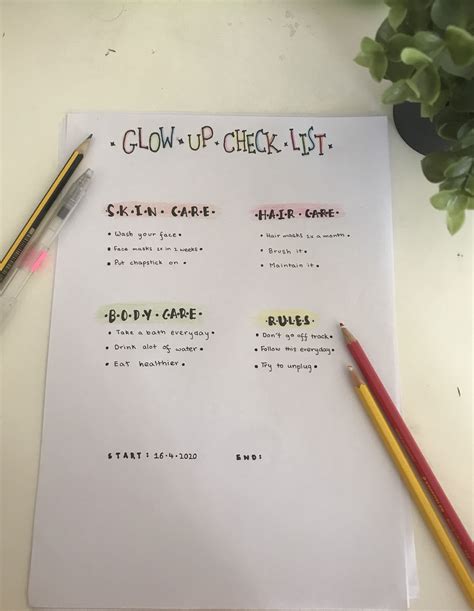 GLOW UP CHECK LIST
SKIN CARE
Wash your face
Face masks 1x in 2 weeks
Put chapstick on
HAIR CARE
Hair masks 2x a month
Brush it
Maintain it
BODY CARE
Take a bath everyday
Drink alot of water
Eat healthier
RULES
Don't go off track
Follow this everyday
Try to unplug
START: 16.4.2020
END: